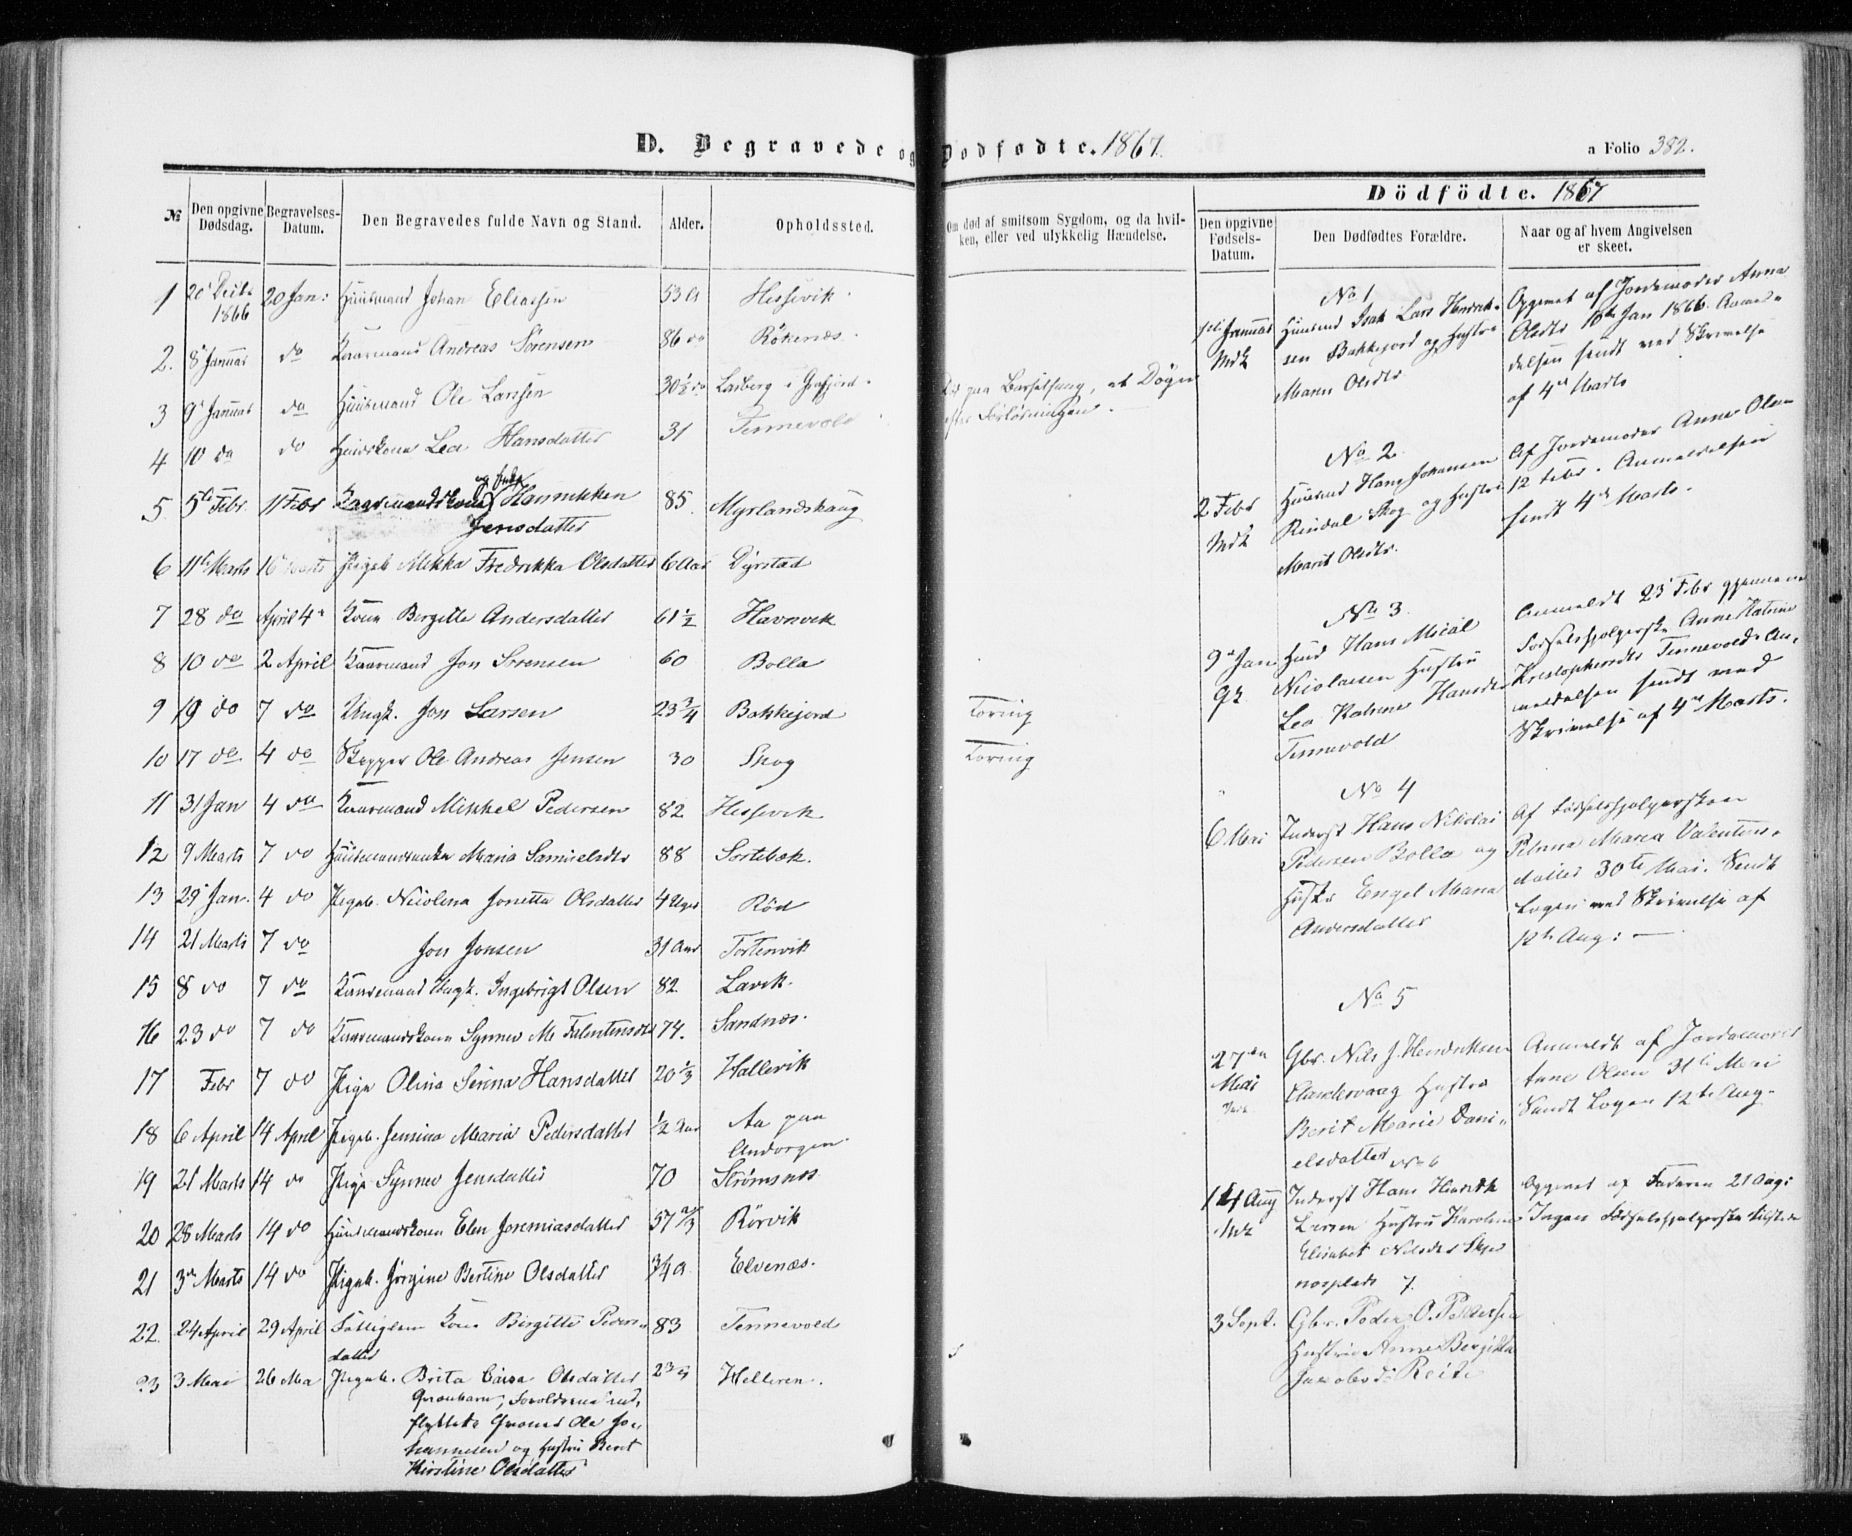 D. Begravede og Dødfødte. 1867.
a Folio 382.
№
Den opgivne Dødsdag.
Begravelses-Datum.
Den Begravedes fulde Navn og Stand.
Alder.
Opholdssted.
Om død af smitsom Sygdom, og da hvil-
ken, eller ved ulykkelig Hændelse.
1 20 1866 20 Jan: Huusmand Johan Eliassen 53 A Hessevik.
2. 8 Januar do Kaarmand Andreas Sörensen 86 do Rökenæs.
3 9 Januar do Huusmand Ole Larssen 30½ do
4 10 do do Lea Hansdatter 31 Tennevold
Død paa Barselseng, et Døgn
efter Forløsningen.
5 5te Febr 11 Febr Kaarmandskone Hannikken 85. Myrlandshaug
Jensdatter
6 11te Marts Pigeb. Mikka Fredrikka Olsdatter 6 Aar Dyrstad
7 28 do April 4 Kone Bergitte Andersdatter 61½ Havnvik
8 10 do 2 April Kaarmand Jon Sörensen 60 Bolla
9 19 do 7 do Ungk. Jon Larsen 23¾ Bakkejord Tæring
10 17 do 4 do Ole Andreas Jensen 30 Skog Tæring
11 31 Jan 4 do Kaarmand Mikkel Pedersen 82 Hessevik
12 9 Marts 7 do Maria Samuelsdtr 88 Sortebæk.
13 29 Jan. 4 do Pigeb. Nicolena Jonetta Olsdatter 4 Uger Rød
14 21 Marts 7 do Jon Jonsen 31 Aar
15 8 do 7 do Kaarmand Ungk. Ingebrigt Olsen 82 Lavik.
16 23 do 7 do Kaarmandskone Synnev M. 74. Sandnæs.
17 Febr 7 do Pige Olina Serina Hansdatter 20⅓ Hallevik
18 6 April 14 April Pigeb. Jensina Maria Pedersdatter ½ Aar Aa paa
Andorgen.
19 21 Marts 14 do Pige Synnev Jensdatter 70 Strömsnes
20 28 Marts 14 do Huusmandskone Elen Jeremiasdatter 57⅔ Rörvik
21 3 Marts 14 do Pigeb. Jörgine Bertine Olsdatter ¾ A Elvenæs.
22. 24 April 29 April Fattiglem Kone Birgitte Peders- 83 Tennevold
datter
23 3 Mai 26 Mai Pigeb. Brita Olsdatter Helleren.
Qvænbarn, Foreldrene ind-
flyttede Qvæner Ole Jo-
hannesen og Hustru Berit
Kirstine Olsdatter
Dödfödte. 1867
Den opgivne Fødsels-Datum.
Den Dødfødtes Forældre.
Naar og af hvem Angivelsen er skeet.
No 1
1ste Januar
Mdk
Huusmd Isak Lars Henrik-
sen Bakkejord og Hustru
Maren Olsdtr.
Opgivet af Jordemoder Anna
Olsdtr 10de Jan 1866. Anmel-
delsen sendt med Skrivelse
af 4de Marts
No 2
2 Febr
Mdk
Huusmd Hans Johansen
Rindal Skog og Hustru
Marit Olsdtr.
Af Jordemoder Anne Olsen
12 Febr. Anmeldelsen
sendt 4de Marts.
No 3.
9 Jan
Qk
Huusmd Hans Mical
Nicolaisen Hustru
Lea Katrine Hansdtr
Tennevold
Anmeldt 23 Febr gjennem
Fødselshjelperske Anne Katrine
Kristophersdtr Tennevold. An-
meldelsen sendt med
Skrivelse af 4de Marts.
No 4
6 Mai
Inderst Hans Nikolai
Pedersen Bolla og
Hustr Engel Maria
Andersdatter
Af Fødselshjelpersken
Maria Valentins-
datter 30te Mai. Sendt
Logen med Skrivelse af
12te Aug:
No 5
27de
Mai
Gbr. Nils J. Hendriksen
Hustru
Berit Marie Dani-
elsdatter
Anmeldt af Jordemoder
Anne Olsen 31te Mai
Sendt Logen 12te Aug.
No 6
14 Aug
Mdk
Inderst Hans Henrik
Larsen Hustru Karoline
Elisabet Nilsdtr
Opgivet af Faderen 21 Aug:
Ingen Fødselshjelperske tilstede
7.
3 Sept.
Gbr. Peder O. Pedersen
Hustru Anne Bergitta
Jacobsd: Reite